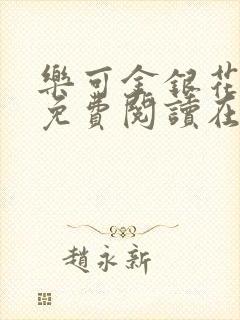 樂可金銀花
免費閱讀在
趙永新